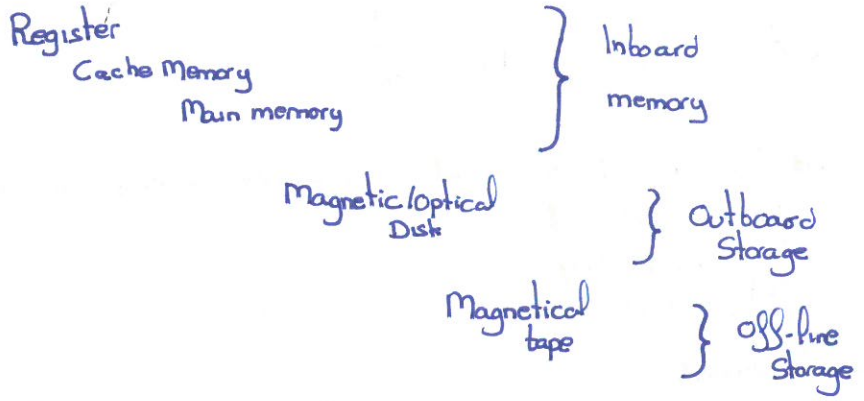 Register
Cache Memory
Main memory
Inboard
memory
Magnetic/optical
Disk
Outboard
Storage
Magnetical
tape
Off-line
Storage